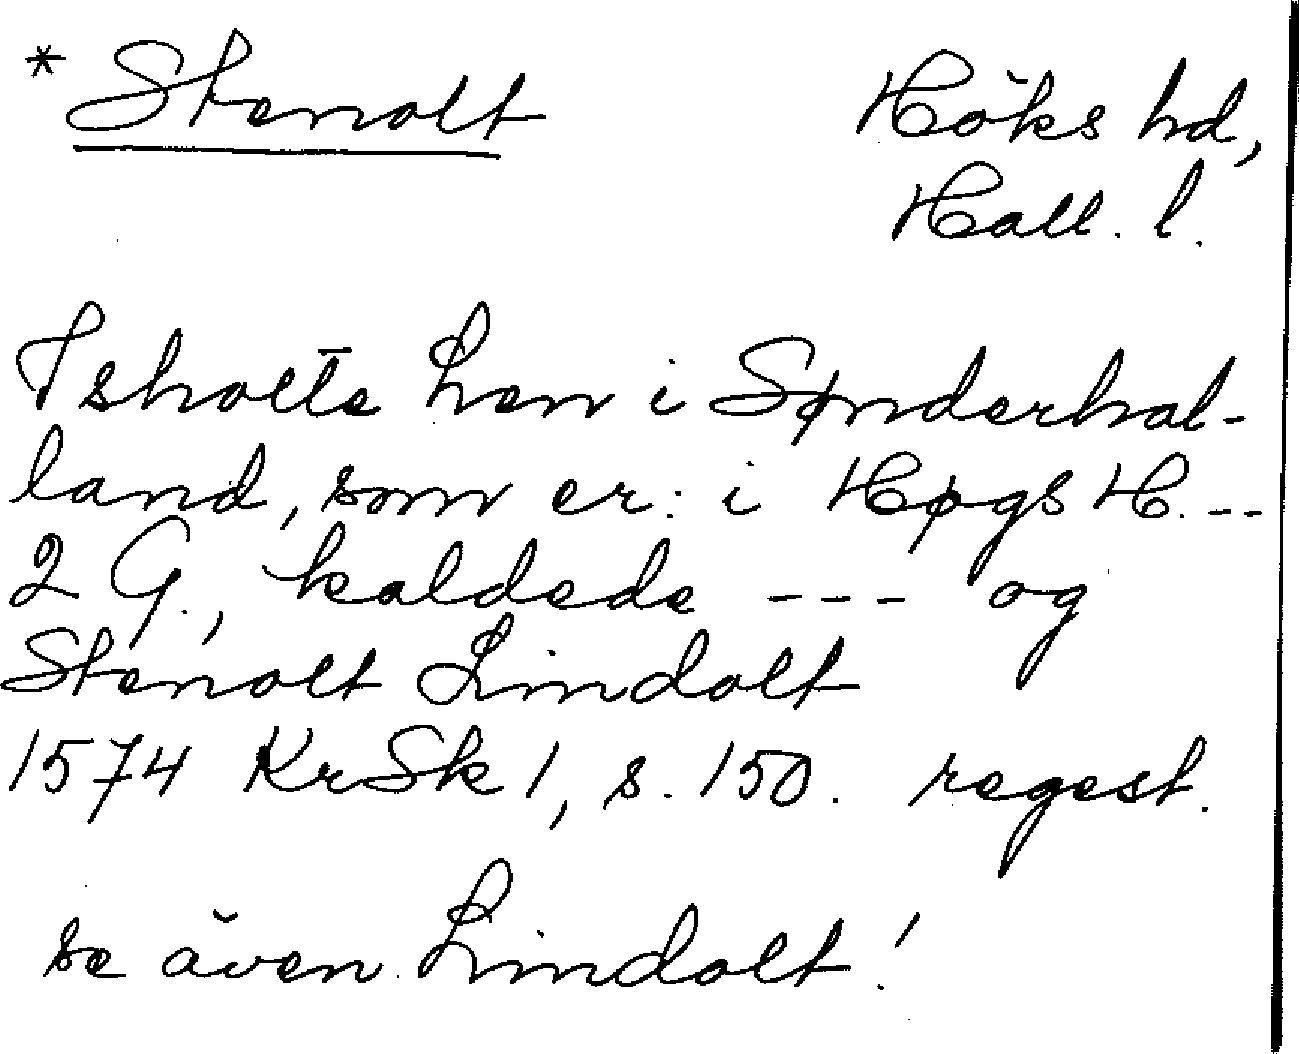 * Stenolt Höks hd,
Hall. l.
Tsholte Len i Sønderhal-
land, som er: i Høgs H. --
2 G., kaldede --- og
Stenolt Lindolt
1574 KrSk 1, s. 150. regest.
se även Lindolt!